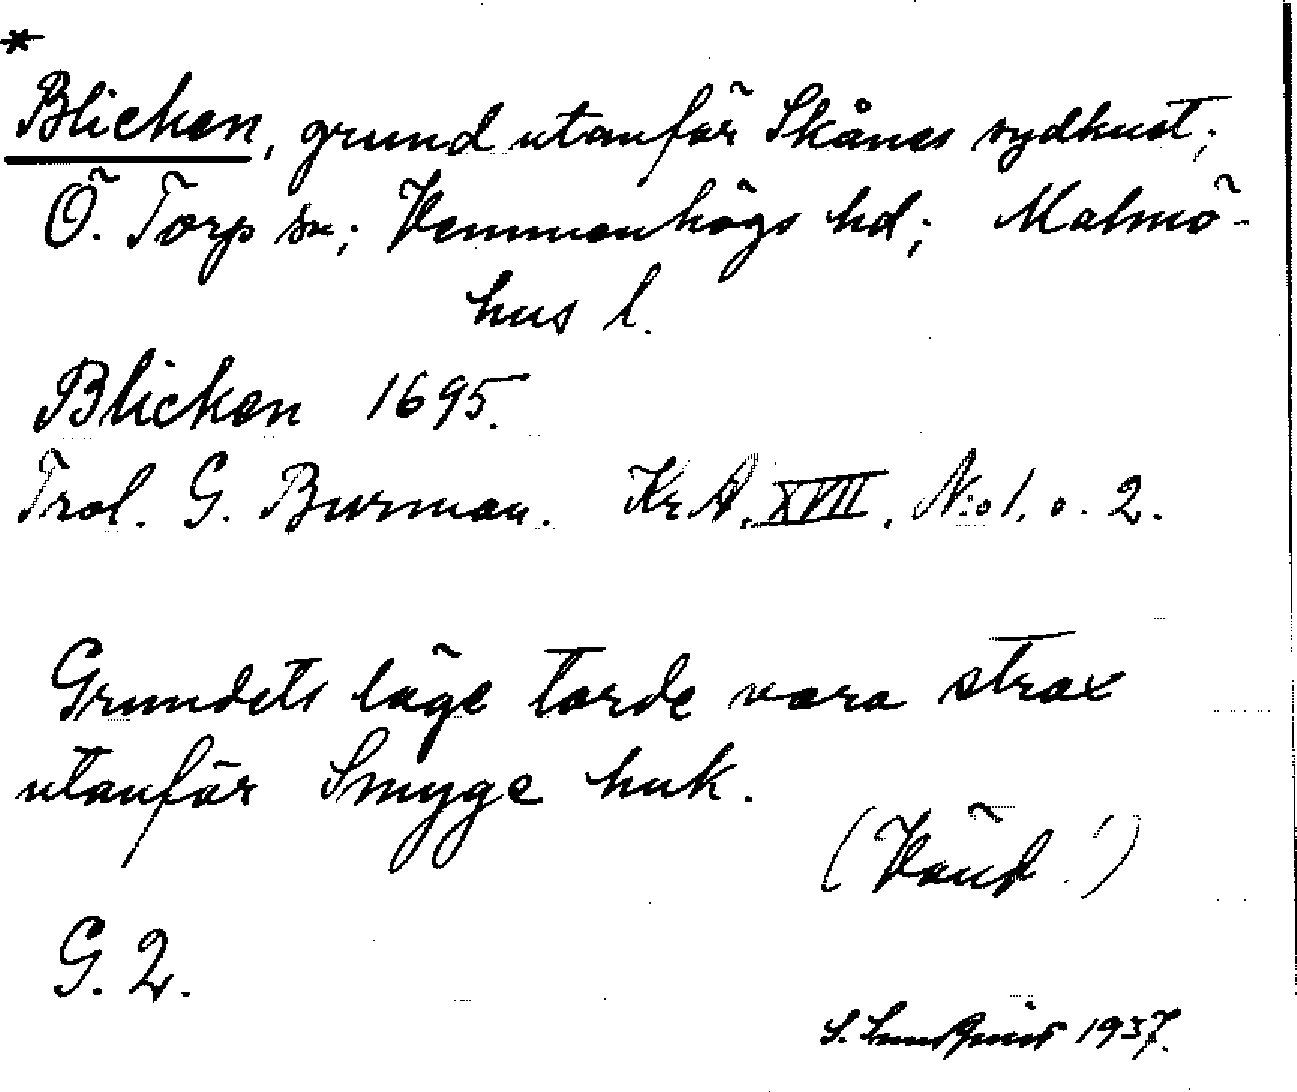 *
Blicken, grund utanför Skånes sydkust;
Ö. Torp sn; Vemmenhögs hd; Malmö-
hus l.
Blicken 1695.
Trol. G. Burman. KrA. XVII. N:o 1. o. 2.
Grundets läge torde vara strax
utanför Smyge huk.
(Vänd!)
G. 2.
S. Lundqvist 1937.